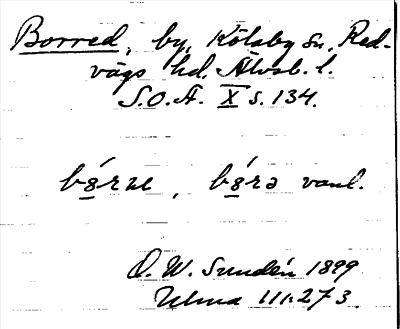 Borred, by, Kölaby sn, Red-
vägs hd, Älvsb. l.
S.O.Ä. X s. 134.
bórne, bórə vanl.
O. W. Sundén 1899
Ulma 111:273.